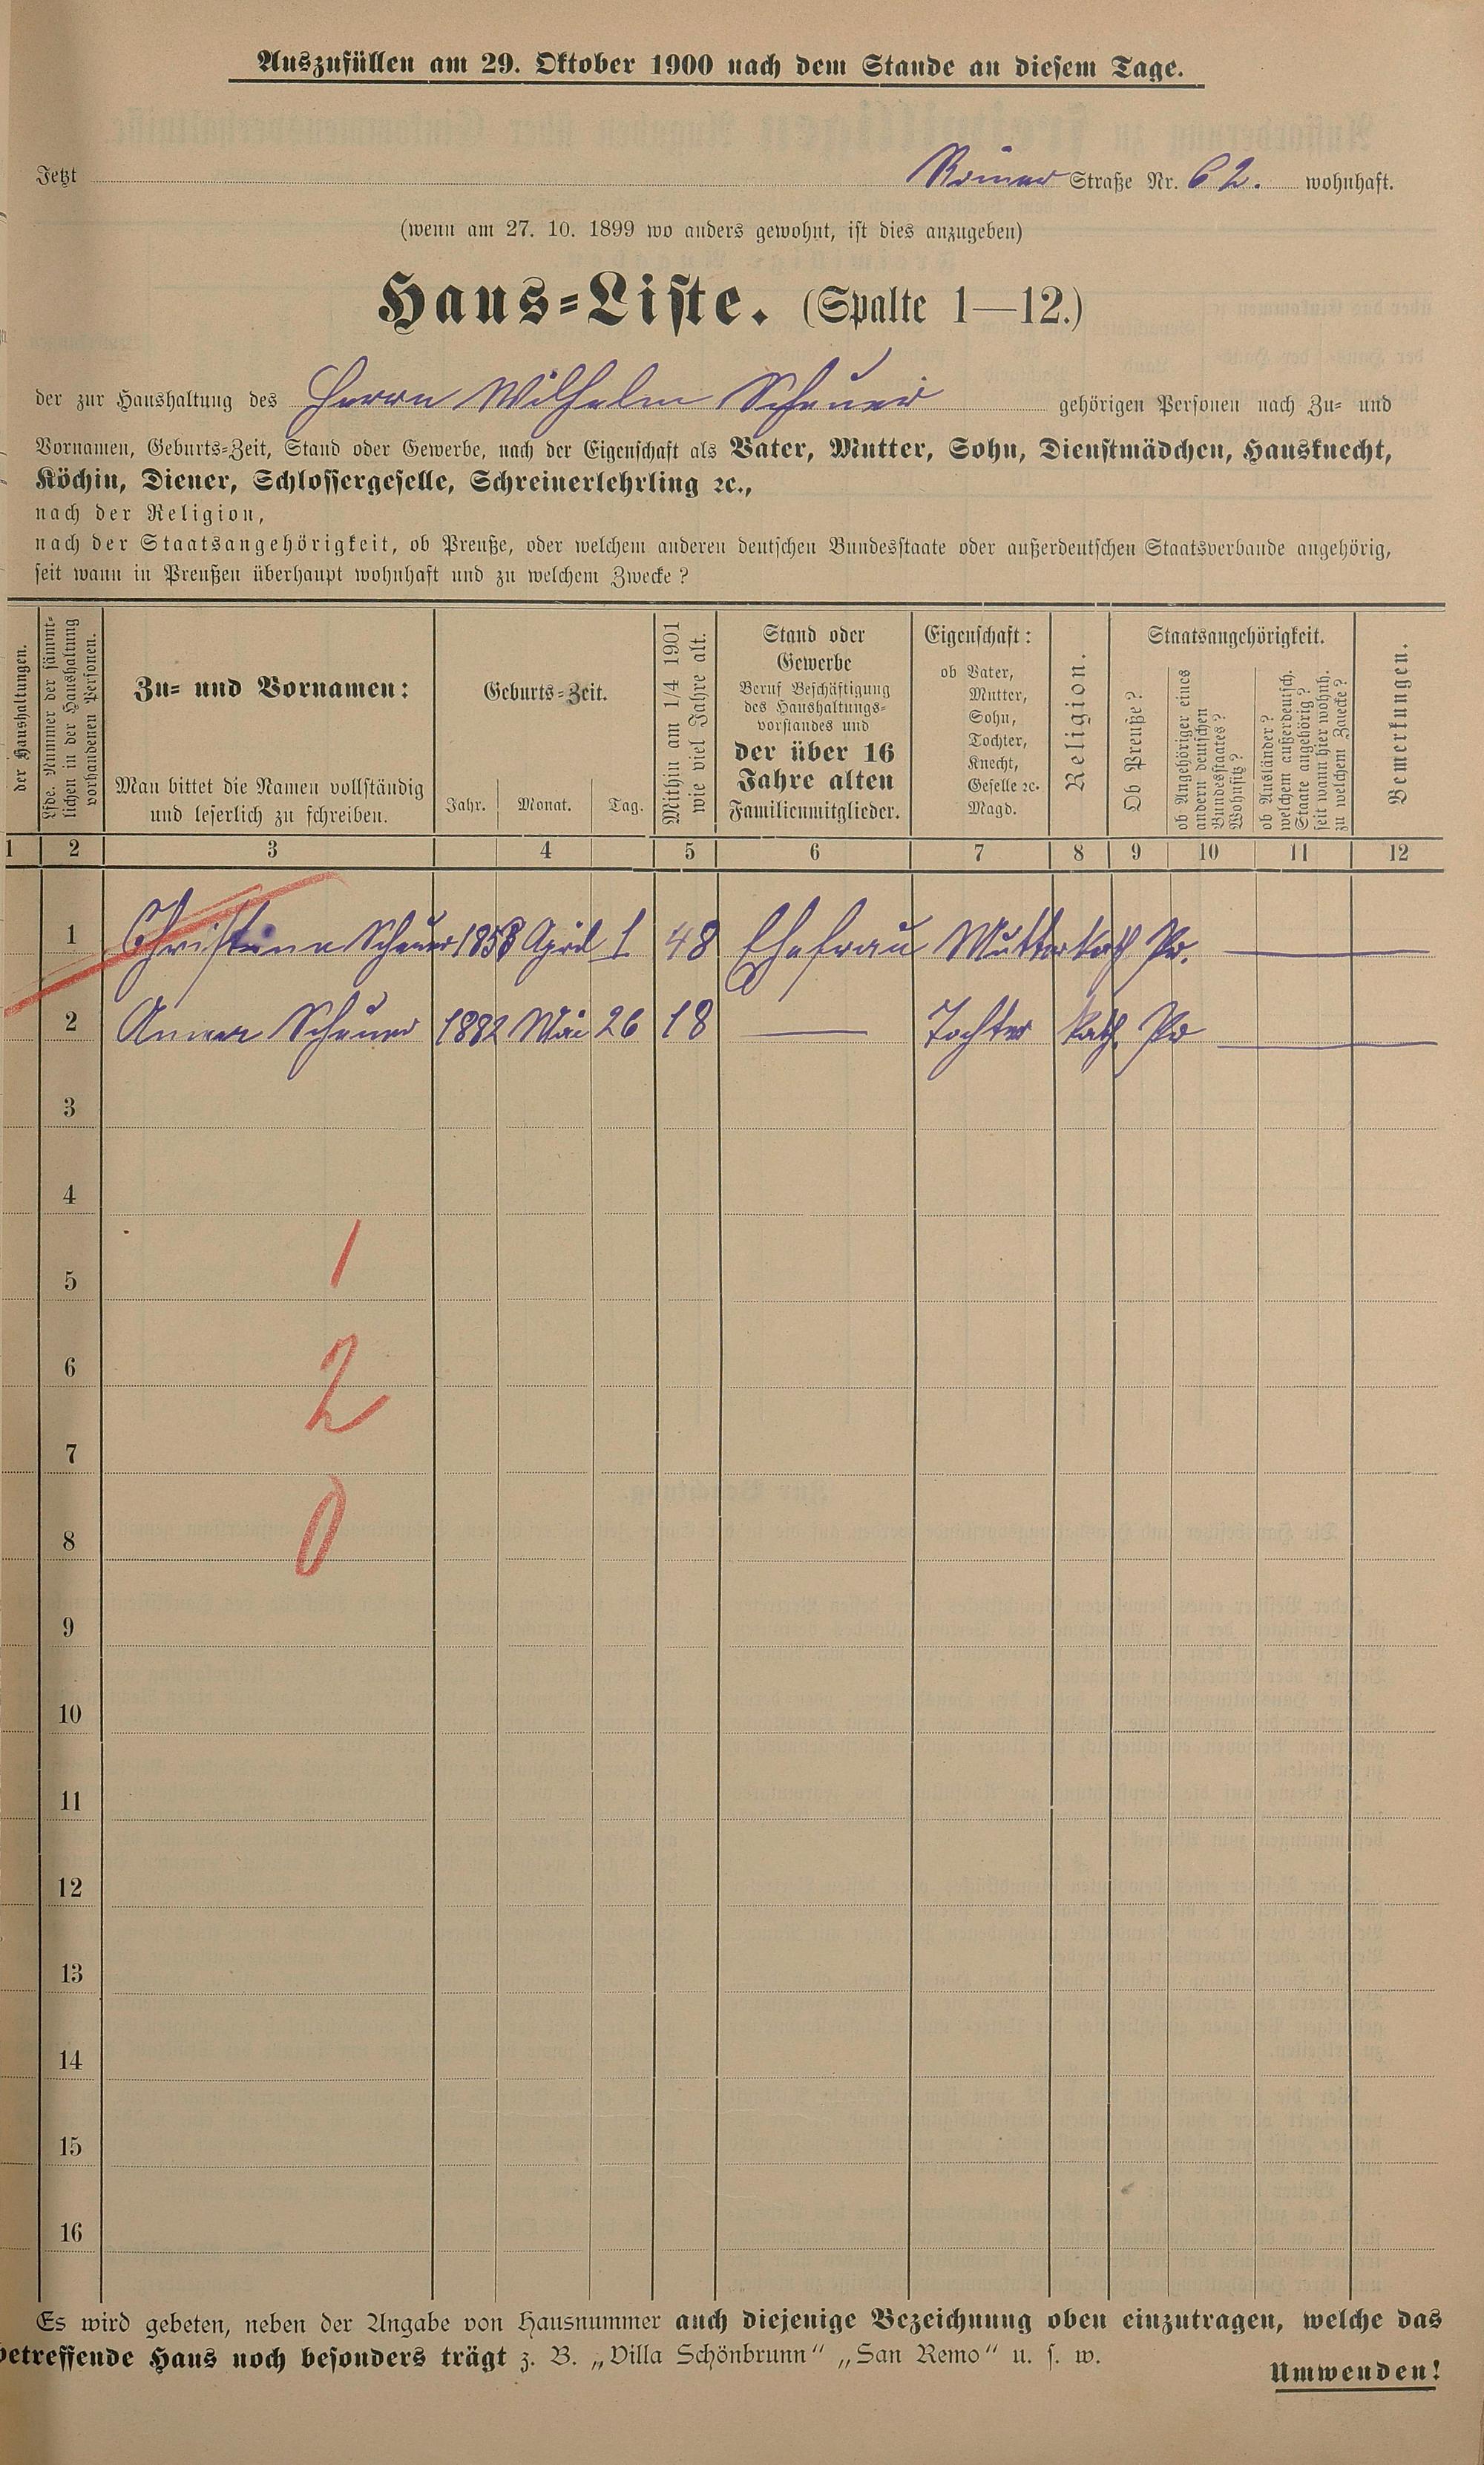 Auszufüllen am 29. Oktober 1900 nach dem Stande an diesem Tage.
Jetzt Römer Straße Nr. 62. wohnhaft.
(wenn am 27. 10. 1899 wo anders gewohnt, ist dies anzugeben)
Haus-Liste. (Spalte 1—12.)
der zur Haushaltung des Herrn Wilhelm Scheuer gehörigen Personen nach Zu- und
Vornamen, Geburts-Zeit, Stand oder Gewerbe, nach der Eigenschaft als Vater, Mutter, Sohn, Dienstmädchen, Hausknecht,
Köchin, Diener, Schlossergeselle, Schreinerlehrling ꝛc.,
nach der Religion,
nach der Staatsangehörigkeit, ob Preuße, oder welchem anderen deutschen Bundesstaate oder außerdeutschen Staatsverbande angehörig,
seit wann in Preußen überhaupt wohnhaft und zu welchem Zwecke?
der Haushaltungen.
Lfde. Nummer der sämmt-
lichen in der Haushaltung
vorhandenen Personen.
Zu- und Vornamen:
Man bittet die Namen vollständig
und leserlich zu schreiben.
Geburts-Zeit.
Jahr. Monat. Tag.
Mithin am 1/4 1901
wie viel Jahre alt.
Stand oder
Gewerbe
Beruf Beschäftigung
des Haushaltungs-
vorstandes und
der über 16
Jahre alten
Familienmitglieder.
Eigenschaft:
ob Vater,
Mutter,
Sohn,
Tochter,
Knecht,
Geselle ꝛc.
Magd.
Religion.
Staatsangehörigkeit.
Ob Preuße?
ob Angehöriger eines
andern deutschen
Bundesstaates?
Wohnsitz?
ob Ausländer?
welchem außerdeutsch.
Staate angehörig?
seit wann hier wohnh.
zu welchem Zwecke?
Bemerkungen.
1 2 3 4 5 6 7 8 9 10 11 12
1 Christina Scheuer 1853 April 1. 48 Ehefrau Mutter kath Pr.
2 Anna Scheuer 1882 Mai 26 18 Tochter kath. Pr
3
4
1
5
2
6
7
0
8
9
10
11
12
13
14
15
16
Es wird gebeten, neben der Angabe von Hausnummer auch diejenige Bezeichnung oben einzutragen, welche das
betreffende Haus noch besonders trägt z. B. „Villa Schönbrunn“ „San Remo“ u. s. w.
Umwenden!